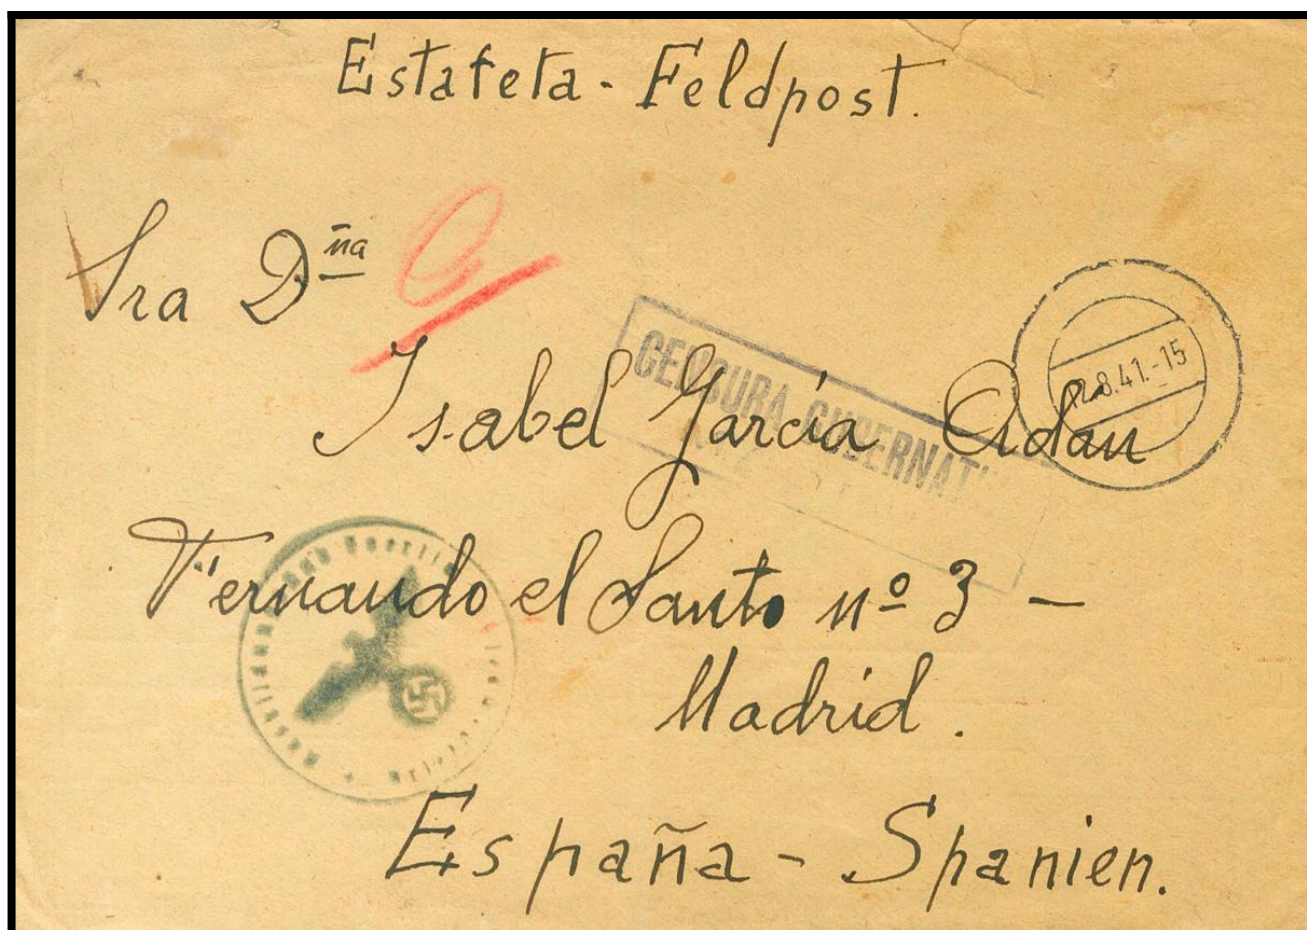 Estafeta - Feldpost.
Sra Dña
CENSURA GUBERNATI
Isabel García Adan
.8.41.-15
Fernando el Santo nº 3 -
Madrid.
España - Spanien.